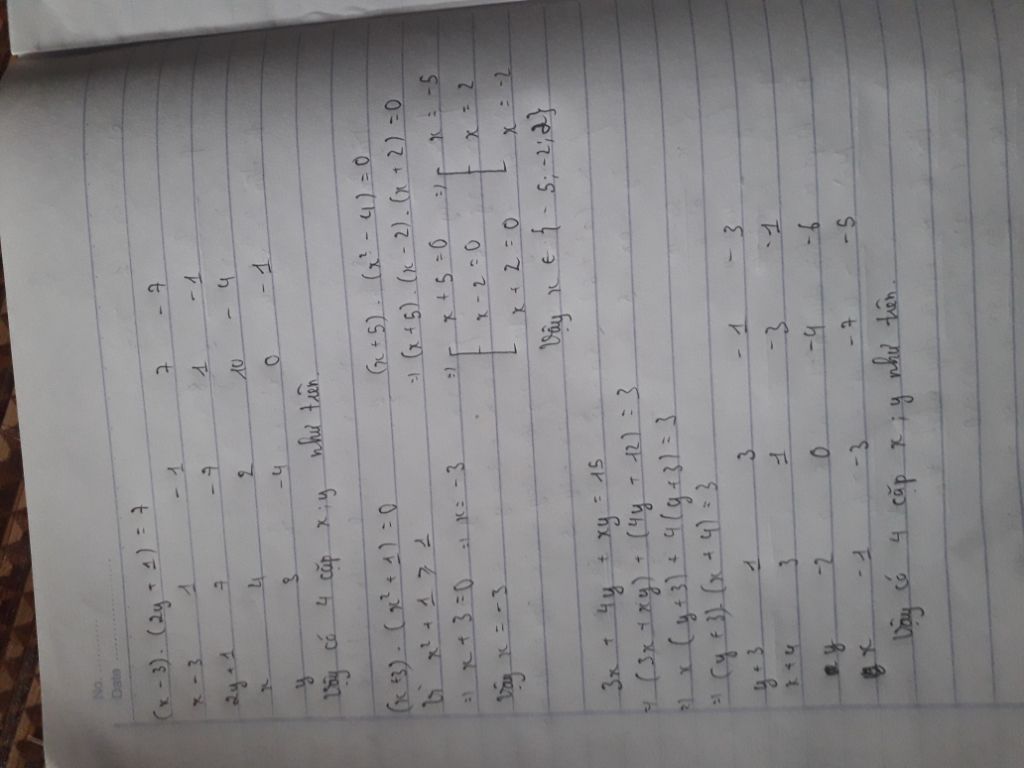 No. ..........
Date ..........
(x - 3) . (2y + 1) = 7
x - 3 1 -1 7 -7
2y + 1 7 -7 1 -1
x 4 2 10 -4
y 3 -4 0 -1
Vậy có 4 cặp x ; y như trên.
(x + 3) . (x² + 1) = 0
Vì x² + 1 ≥ 1
=> x + 3 = 0 => x = -3
Vậy x = -3
(x + 5) . (x² - 4) = 0
=> (x + 5) . (x - 2) . (x + 2) = 0
=> [ x + 5 = 0 => [ x = -5
x - 2 = 0 x = 2
x + 2 = 0 x = -2
Vậy x ∈ { - 5 ; -2 ; 2}
3x + 4y + xy = 15
=> (3x + xy) + (4y + 12) = 3
=> x (y + 3) + 4 (y + 3) = 3
=> (y + 3) (x + 4) = 3
y + 3 1 3 -1 -3
x + 4 3 1 -3 -1
y -2 0 -4 -6
x -1 -3 -7 -5
Vậy có 4 cặp x ; y như trên.